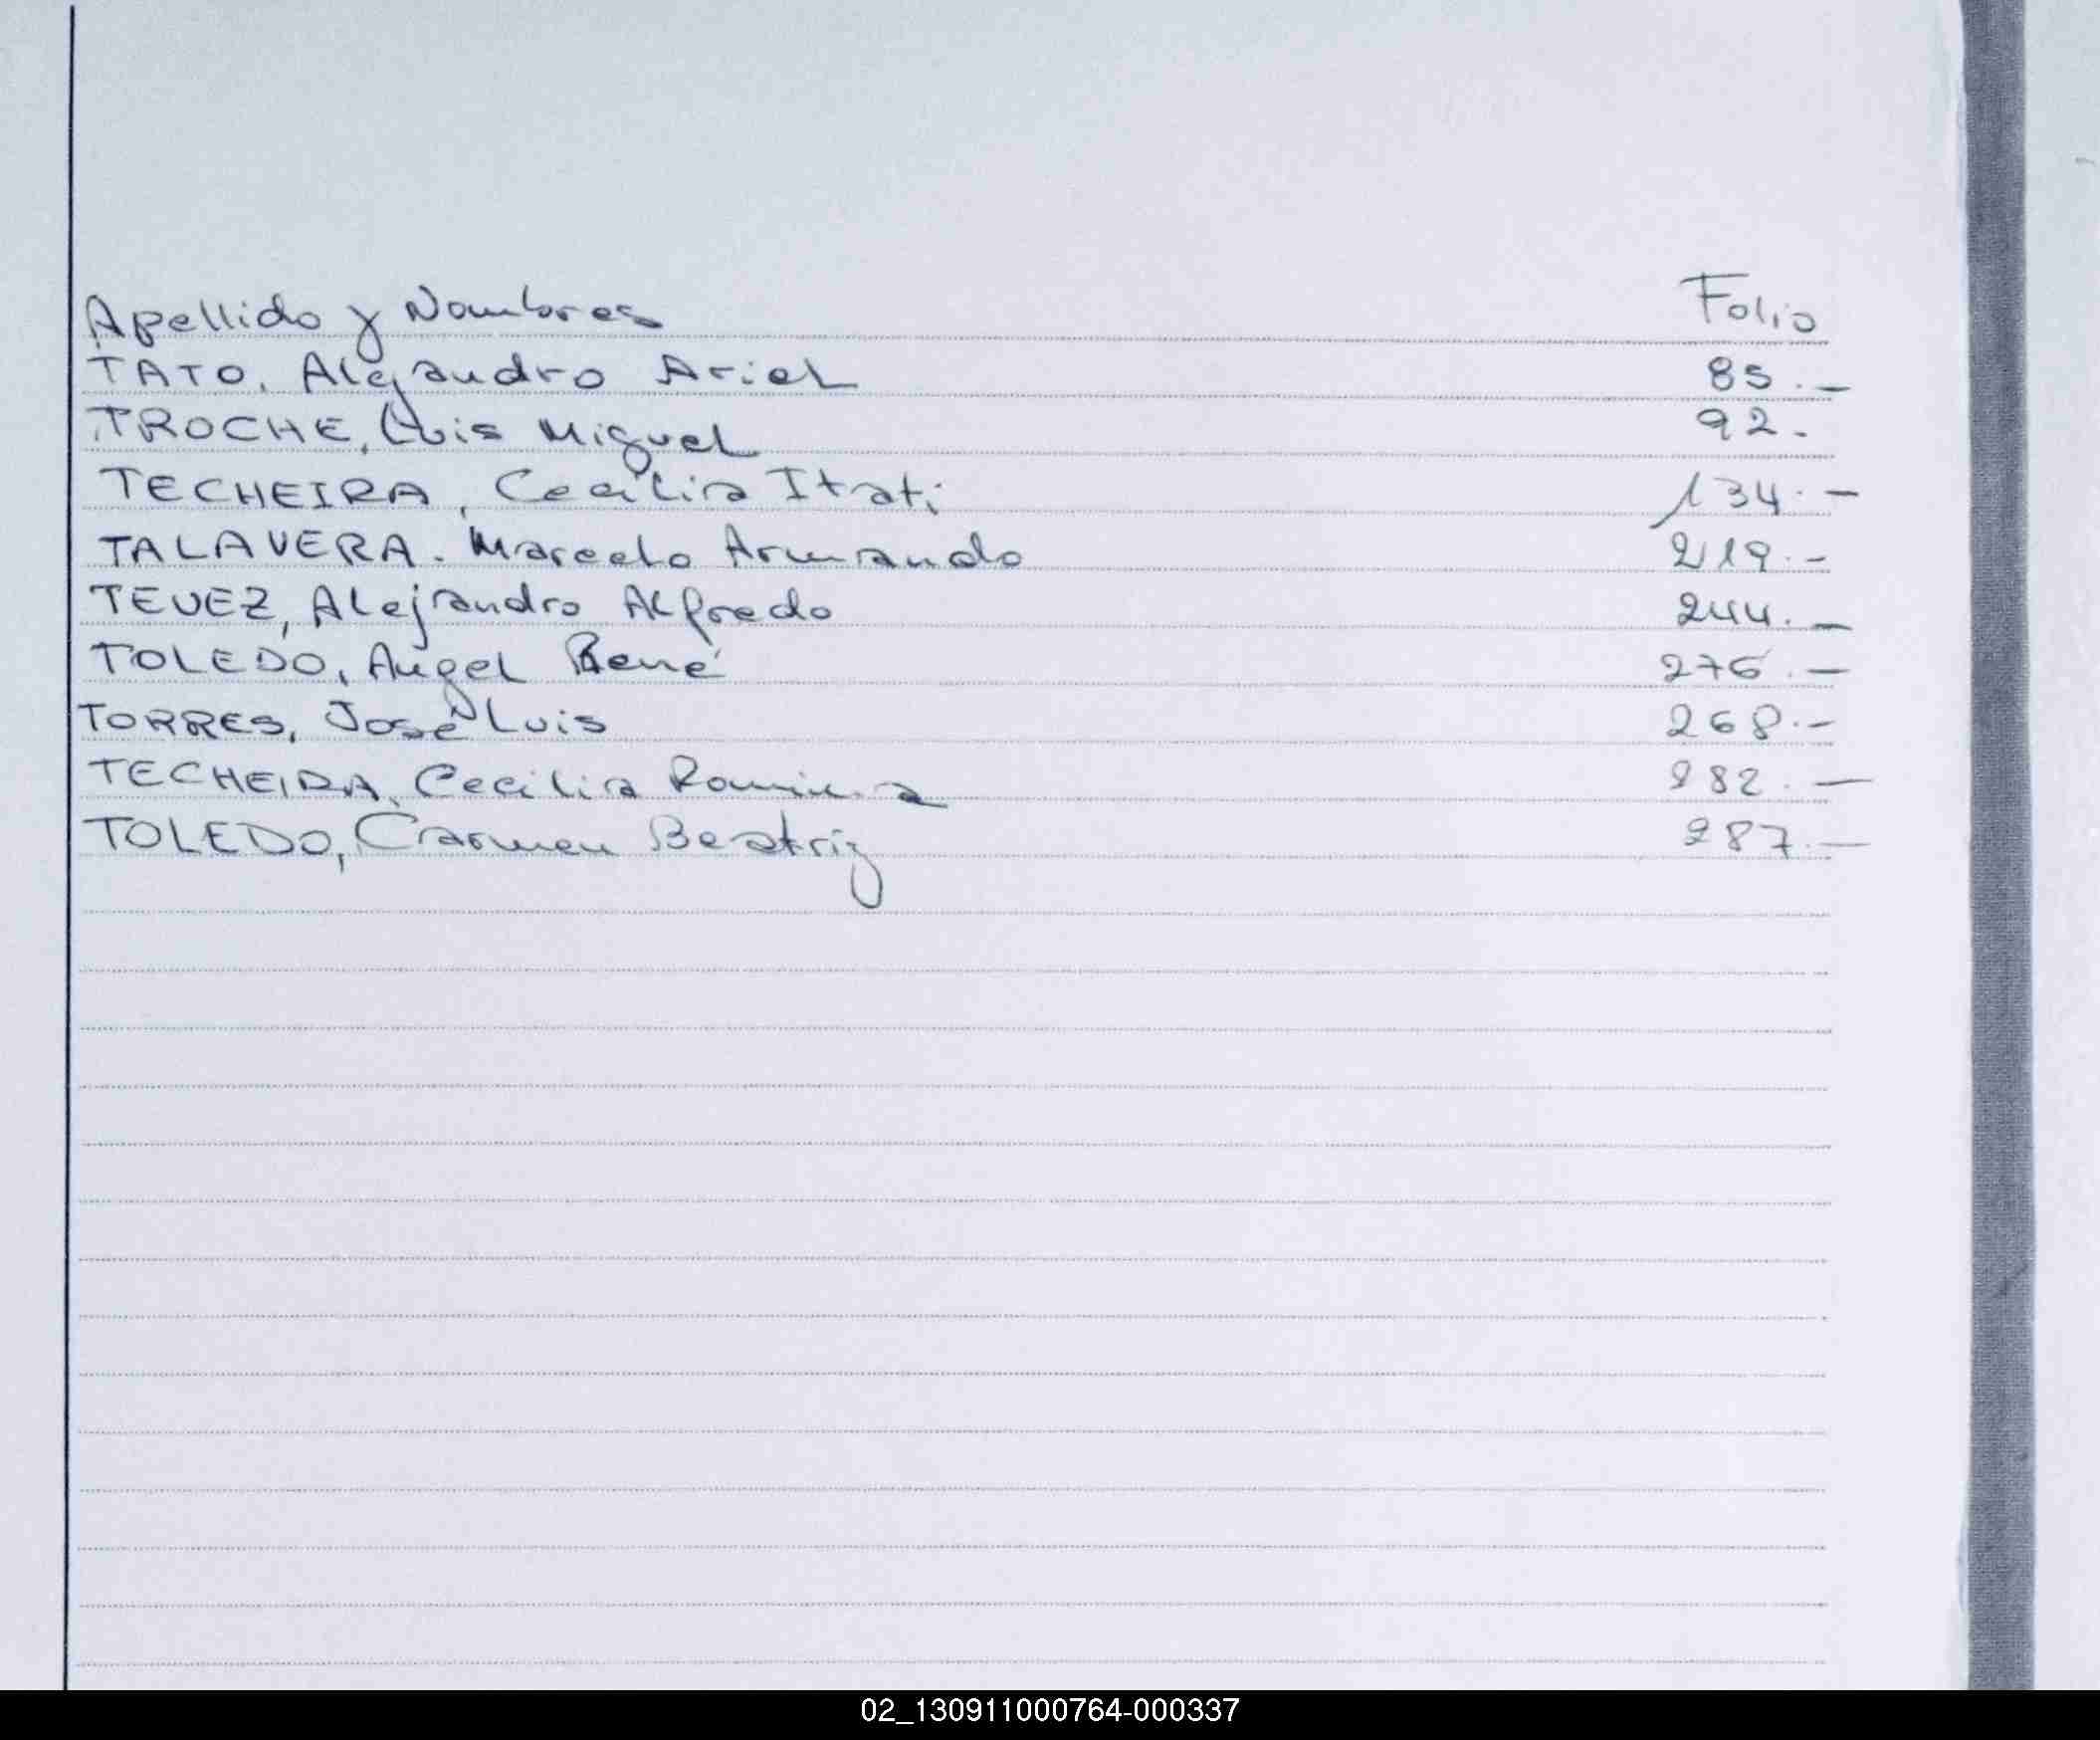 Apellido y Nombres Folio
TATO, Alejandro Ariel 85.-
TROCHE, Luis Miguel 92.
TECHEIRA, Cecilia Itati 134.-
TALAVERA. Marcelo Armando 219.-
TEVEZ, Alejandro Alfredo 244.-
TOLEDO, Angel René 276.-
TORRES, José Luis 268.-
TECHEIRA, Cecilia Romina 282.-
TOLEDO, Carmen Beatriz 287.-
02_130911000764-000337